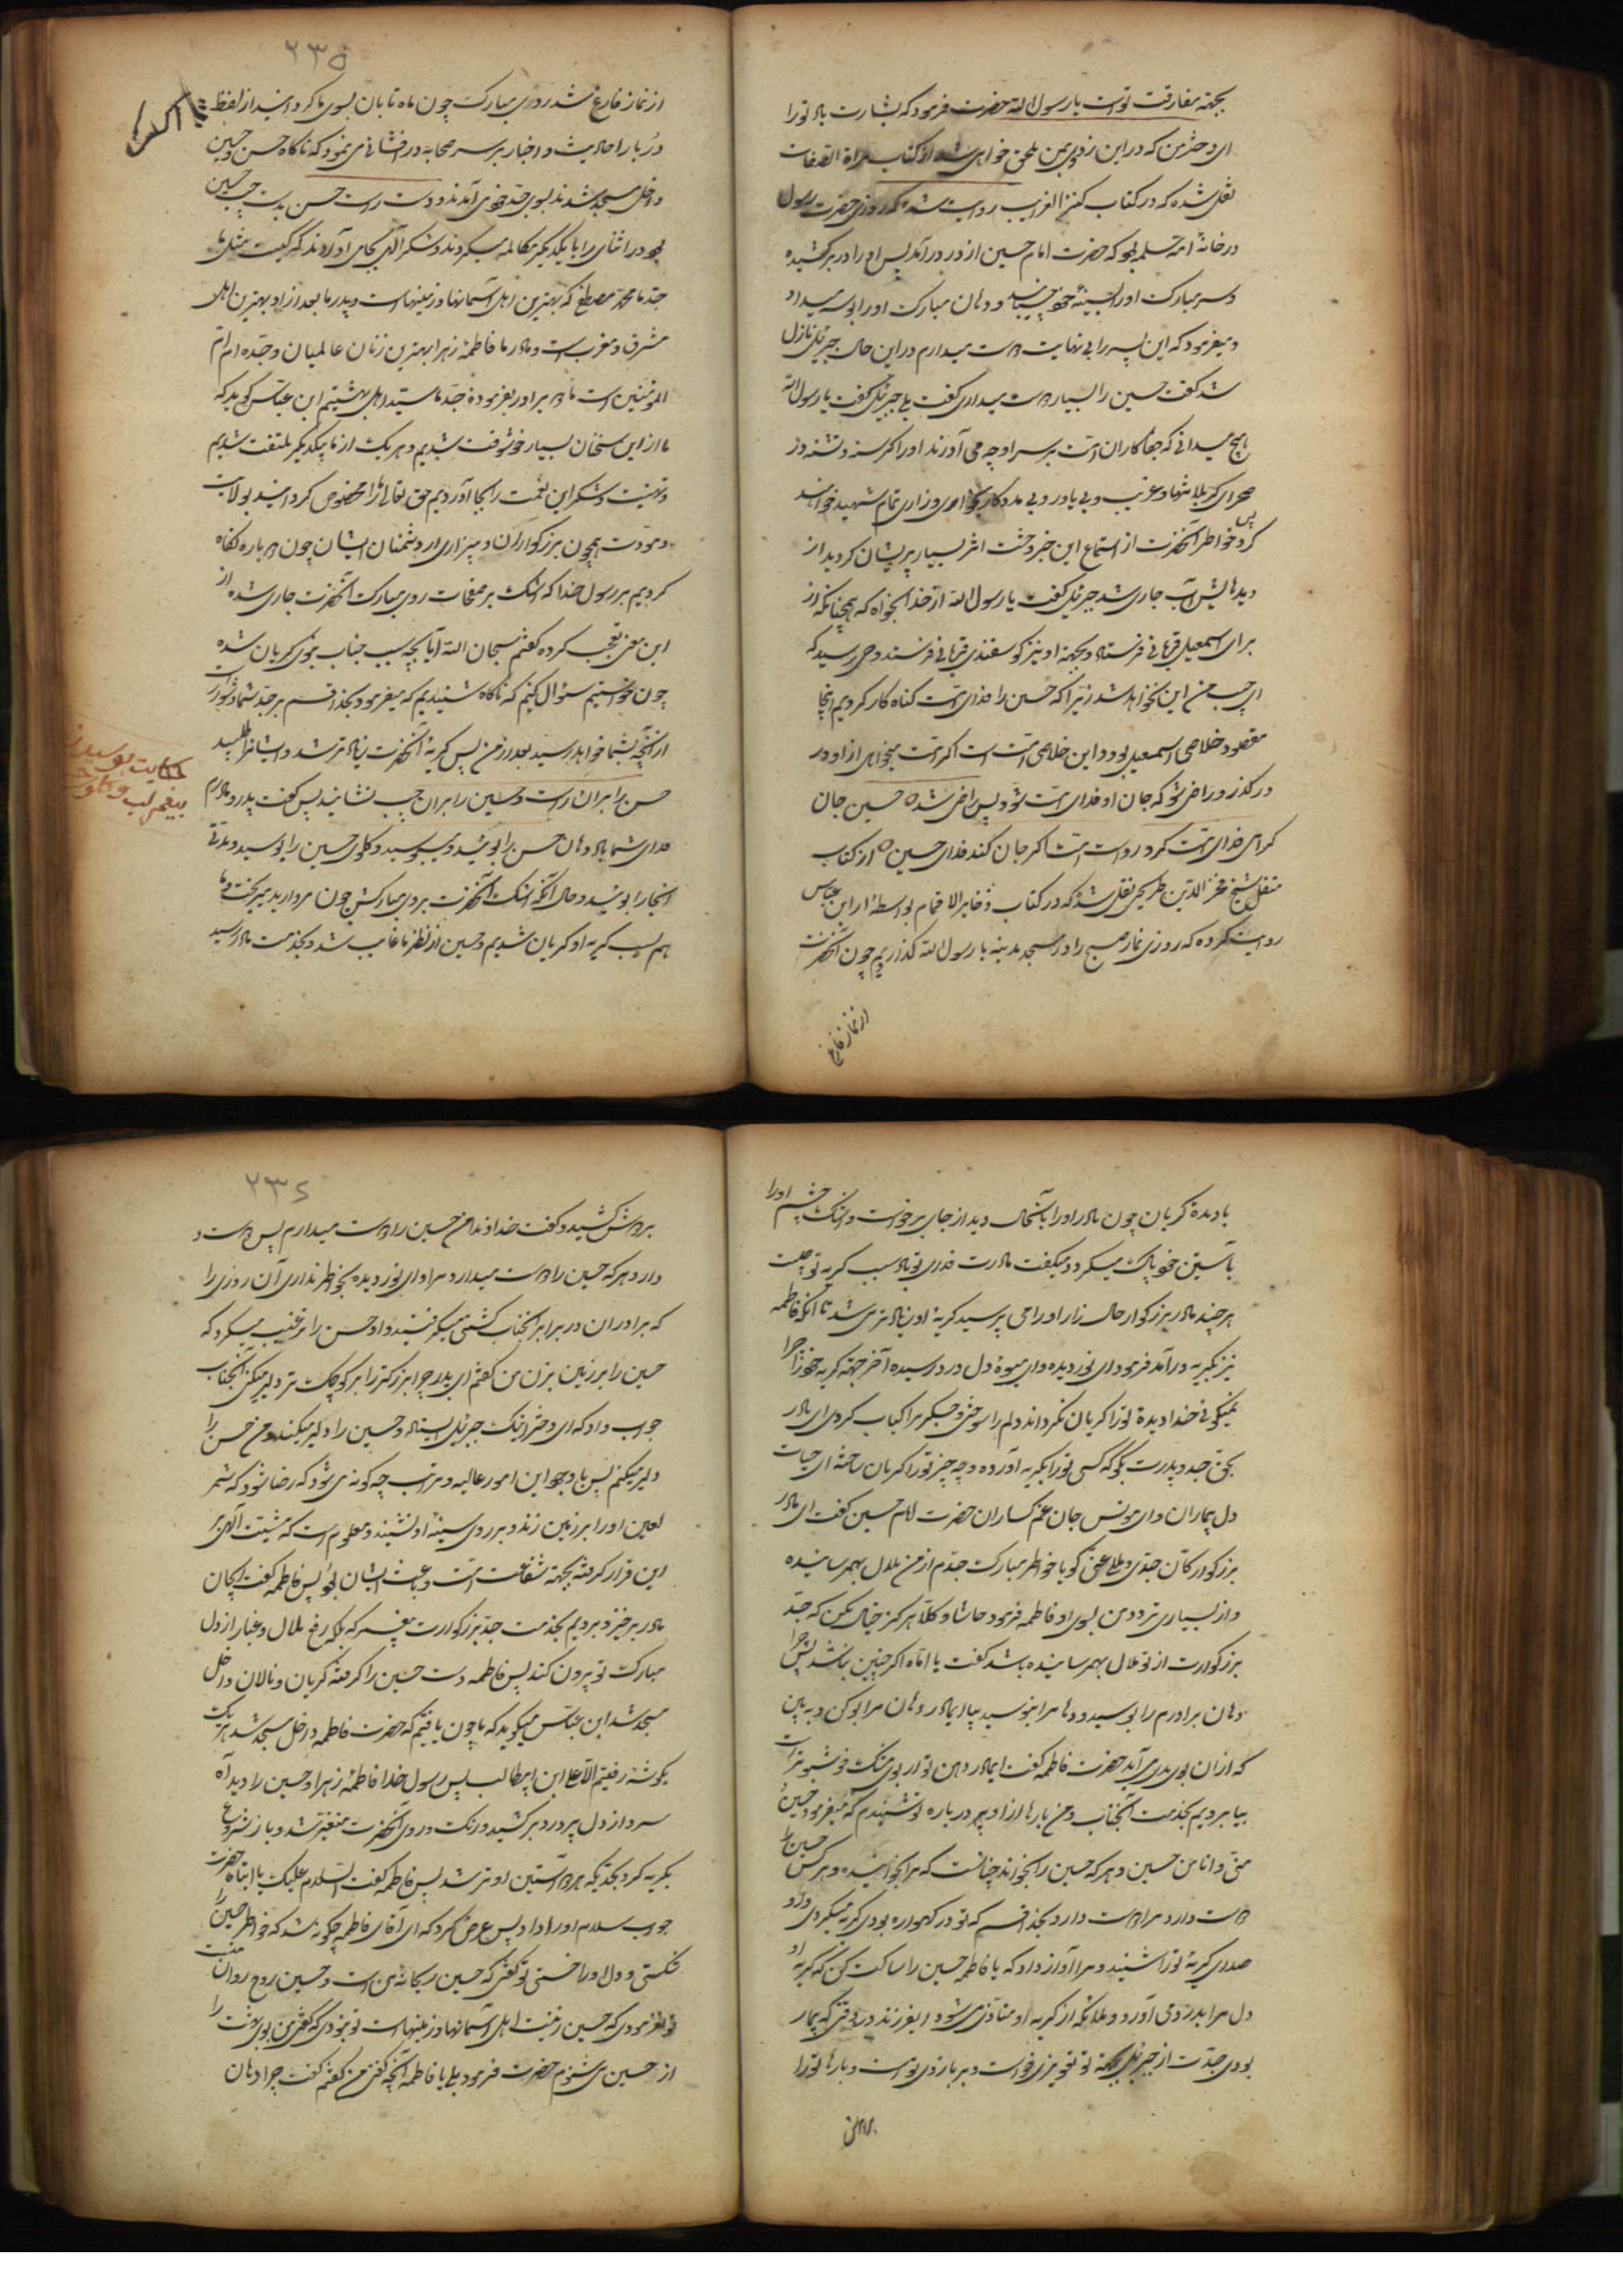 بجهة مفارقت تو است یا رسول الله حضرت فرمود که بشارت باد تو را
ای دختر من که در این زودی بمن ملحق خواهی شد از کتاب مراة الصفات
نقل شده که در کتاب کنز الغرایب روایت شده که روزی حضرت رسول
در خانهٔ ام سلمه بود که حضرت امام حسین از در درآمد پس او را در بر کشیده
و سر مبارک او را بسینهٔ خود چسبانید و دهان مبارک او را بوسه میداد
و میفرمود که این پسر را بی نهایت دوست میدارم در این حال جبرئیل نازل
شد گفت حسین را بسیار دوست میداری گفت بلی جبرئیل گفت یا رسول الله
هیچ میدانی که جفاکاران امت بر سر او چه می آورند او را گرسنه و تشنه در
صحرای کربلا تنها و غریب و بی یاور و بی مددکار بخواری و زاری تمام شهید خواهند
کرد پس خواطر آنحضرت از استماع این خبر وحشت اثر بسیار پریشان گردید از
دیدهایش آب جاری شد جبرئیل گفت یا رسول الله از خدا بخواه که همچنانکه از
برای اسمعیل قربانی فرستاد و بجهة او نیز گوسفندی قربانی فرستد وحی رسید که
ای حبیب من این نخواهد شد زیرا که حسین را فدای امت گناه کار کردیم آنجا
مقصود خلاصی اسمعیل بود و این خلاصی امت است اگر امت میخواهی از او در
در گذر و راضی شو که جان او فدای امت شود پس راضی شد حسین جان
گرامی فدای امت کرد رواست امت اگر جان کند فدای حسین از کتاب
منقل شیخ فخر الدین طریحی نقل شد که در کتاب ذخایر الاقمام بواسطه از ابن عباس
روایت کرده که روزی نماز صبح را در مسجد مدینه با رسول الله گذاردیم چون آنحضرت
از نماز فارغ
۲۳۵
از نماز فارغ شد روی مبارک چون ماه تابان بسوی ما کرد و انبد از لفظ
دربار احادیث و اخبار بر سر صحابه در افشانی می نمود که ناگاه حسن و حسین
داخل مسجد شدند بسوی جد خود می آمدند و دست راست حسن بدست چپ حسین
بود در اثنای راه با یکدیگر مکالمه میکردند و شکر آلهی بجای آوردند که کیست مثل ما
جد ما محمد مصطفی که بهترین اهل آسمانها و زمینهاست و پدر ما بعد از او بهترین اهل
مشرق و مغرب است و مادر ما فاطمهٔ زهرا بهترین زنان عالمیان و جده ام ام
المؤمنین است ما دو برادر بفرمودهٔ جد ما سید اهل بهشتیم ابن عباس گوید که
ما از این سخنان بسیار خوشوقت شدیم و هر یک از ما بیکدیگر ملتفت شدیم
و تهنیت و شکر این نعمت را بجا آوردیم حق تعالی ما را مخصوص گردانید بولایت
و مودت همچون بزرگواران و بیزاری از دشمنان ایشان چون دو باره نگاه
کردیم بر رسول خدا که اشک بر صفحات روی مبارک آنحضرت جاری شده از
این معنی تعجب کرده گفتم سبحان الله آیا بچه سبب جناب نبوی گریان شده
چون خواستیم سؤال کنیم که ناگاه شنیدیم که میفرمود بخدا قسم بر جد شما دشوار است
از آنچه بشما خواهد رسید بعد از من پس گریهٔ آنحضرت زیاد تر شد و ایشانرا طلبید
حسن را بر ران راست و حسین را بر ران چپ نشانید پس گفت پدر و مادرم
فدای شما باد و دهان حسن را بوئید و ببوسید و گلوی حسین را بوسید و مدتی
آنجا را بوئید و حال آنکه اشک آنحضرت بروی مبارکش چون مروارید میریخت و ما
هم بسبب گریه او گریان شدیم و حسین از نظر ما غایب شد و بخدمت مادر رسید
حکایت بوسیدن
پیغمبر لب و گلو
با دیدهٔ گریان چون مادر او را با آنحال دید از جای برخواست و اشک چشم او را
بآستین خود پاک میکرد و میگفت مادرت فدای تو باد سبب گریه تو چیست
هر چند مادر بزرگوار حال زار او را می پرسید گریهٔ او زیاد تر می شد تا آنکه فاطمه
نیز بگریه در آمد فرمود ای نور دیده و ای میوهٔ دل درد رسیده آخر جهة گریه خود را چرا
نمیگوئی خدا دیدهٔ ترا گریان نگرداند دلم را سوختی و جگر مرا کباب کردی ای مادر
بحق جد و پدرت بگو که کسی تو را بگریه آورده و چه چیز تو را گریان ساخته ای حیات
دل بیماران و ای مونس جان غم گساران حضرت امام حسین گفت ای مادر
بزرگوار کان جدی و ملا عنی گویا خواطر مبارک جدم از من ملال بهمرسانیده
و از بسیاری تردد من بسوی او فاطمه فرمود حاشا و کلا هرگز خیال مکن که جد
بزرگوارت از تو ملال بهمرسانیده باشد گفت یا اماه اگر چنین نباشد پس چرا
دهان برادرم را بوسید و دهان مرا نبوسید بیا ای مادر دهان مرا بو کن و به بین
که از ان بوی بدی می آید حضرت فاطمه گفت ایمادر دهن تو از بوی مشک خوشبو تر است
بیا برویم بخدمت آنجناب و من بارها از او در باره تو شنیدم که میفرمود حسین
منی و انا من حسین و هر که حسین را بخواند چنانست که مرا بخوانده و هر کس حسین را
دوست دارد مرا دوست دارد بخدا قسم که تو در گهواره بودی گریه میکردی و او
صدای گریهٔ تو را شنید و مرا آواز داد که یا فاطمه حسین را ساکت کن که گریه او
دل مرا بدرد می آورد و ملائکه از گریه او متاذی می شود ای فرزند در وقتی که بیمار
بودی جدت از جبرئیل بجهة تو تعویذی خواست و بر بازوی تو است و بارها تو را
۲۳۶
بر دوش کشید و گفت خداوندا من حسین را دوست میدارم پس دوست
دار هر که حسین را دوست میدارد مرا و ای نور دیده بخواطر نداری آن روزی را
که برادران در برابر آنجناب کشتی میگرفتید و او حسن را ترغیب میکرد که
حسین را بر زمین بزن من گفتم ای پدر چرا بزرگتر را بر کوچک تر دلیر میکنی آنجناب
جواب داد که ای دختر اینک جبرئیل ایستاده و حسین را دلیر میکند و من حسن را
دلیر میکنم پس با وجود این امور عالیه و مراتب چه گونه می شود که رضا شود که شمر
لعین او را بر زمین زند و بر روی سینهٔ او نشیند و معلوم است که مشیت آلهی بر
این قرار گرفته بجهة شفاعت امت و باعث ایشان بود پس فاطمه گفت ایجان
مادر برخیز و برویم بخدمت جد بزرگوارت پیغمبر که بلکه رفع ملال و غبار از دل
مبارک تو بیرون کند پس فاطمه دست حسین را گرفته گریان و نالان داخل
مسجد شد ابن عباس میگوید که ما چون یافتیم که حضرت فاطمه داخل مسجد شد هر یک
بگوشه رفتیم الا علی ابن ابیطالب پس رسول خدا فاطمهٔ زهرا و حسین را دید آه
سرد از دل پر درد بر کشید و رنگ و روی آنحضرت متغیر شد و باز شروع
بگریه کرد بحدیکه هر دو آستین او تر شد پس فاطمه گفت السلام علیک یا ابتاه حضرت
جواب سلام او را داد پس عرض کرد که ای آقای فاطمه چگونه شد که خواطر حسین را
شکستی و دل او را خستی تو گفتی که حسین ریحانهٔ من است و حسین روح روان منست
تو نفرمودی که حسین زینت اهل آسمانها و زمینهاست تو نبودی که گفتی من بوی بهشت را
از حسین می شنوم حضرت فرمود بلی یا فاطمه آنچه گفتی من گفتم گفت چرا دهان